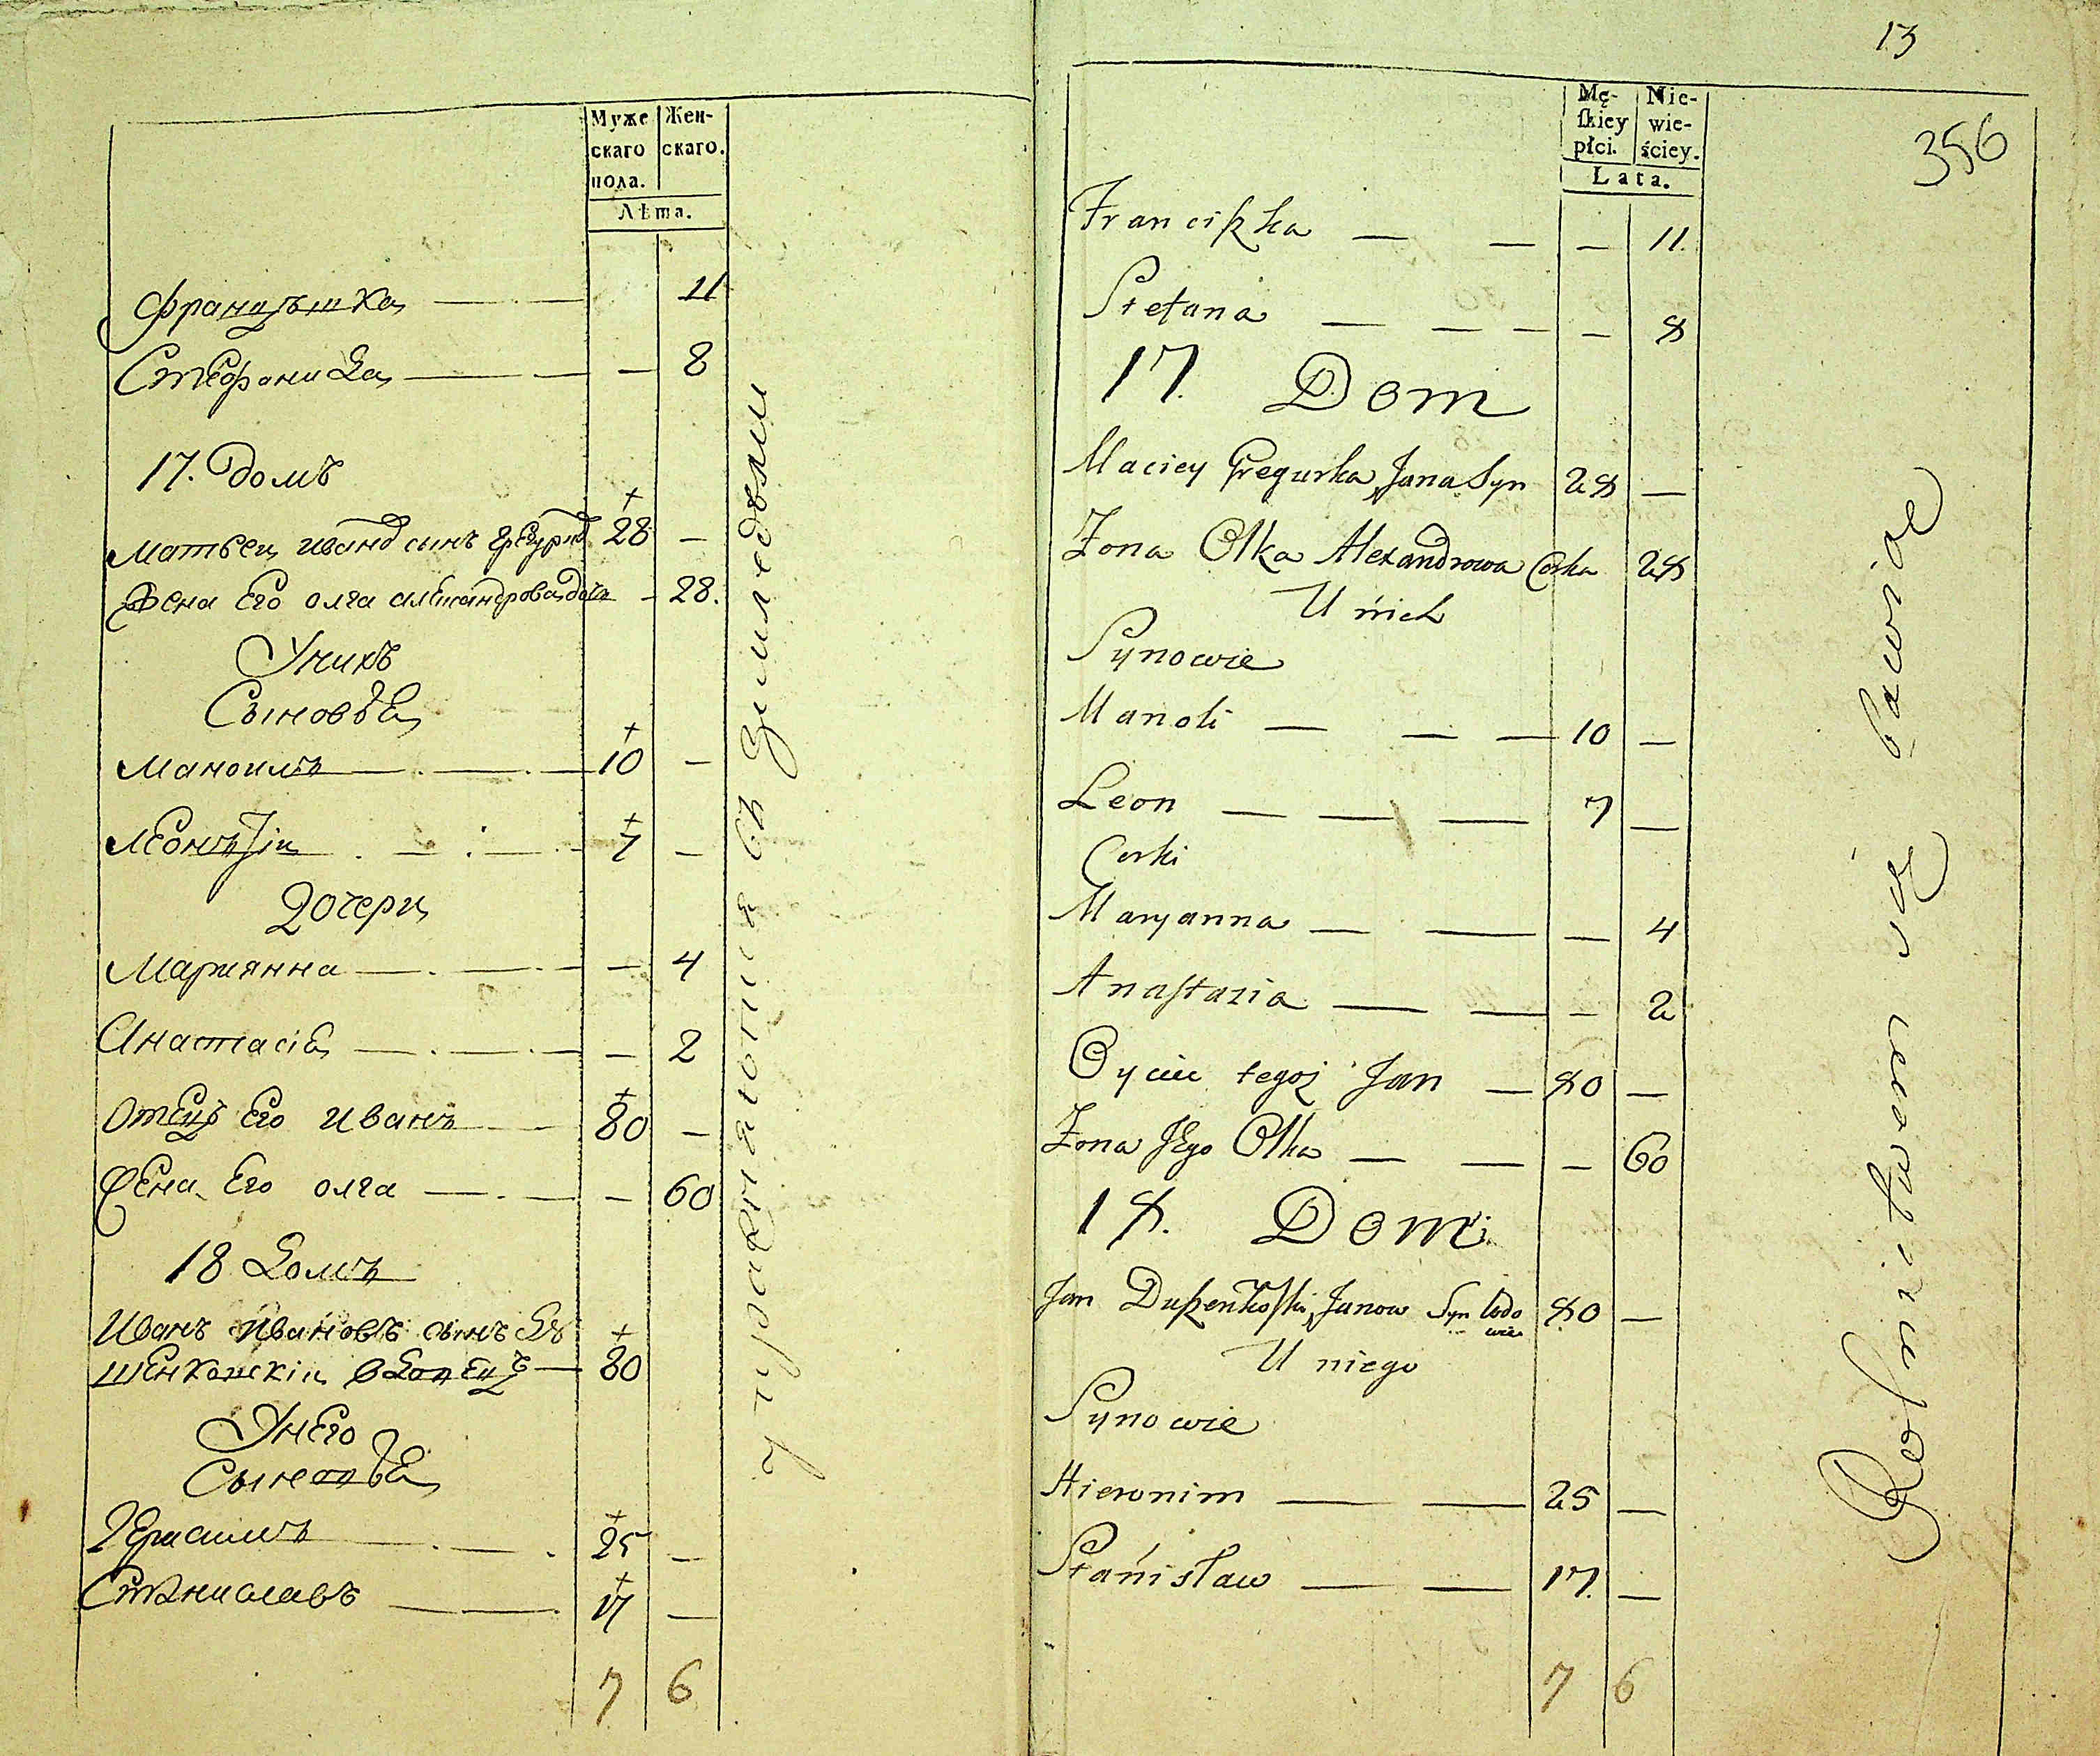 Муже
скаго
пола.
Жен-
скаго.
Лѣта.
Францышка — — 11
Стефанида — — — 8
17. Домъ
Матвей Иванов сынъ 28 —
Жена Его олга александрова дочь — 28.
У нихъ
Сыновѣя
Маноилъ — — — 10 —
Леонтій — — — 7 —
Дочери
Марианна — — — — 4
Анастасія — — — — 2
Отецъ Его Иванъ — — 80 —
Жена Его олга — — — 60
18 Домъ
Иванъ Ивановъ сынъ Ду
шенковскій вдовецъ — 80
У него
Сыновѣя
Герасимъ — — . 25 —
Станиславъ — — 17 —
7 6
упражняются въ земледелии
13
356
Mę-
skiey
płci.
Nie-
wie-
ściey.
Lata.
Franciszka — — — 11.
Stefana — — — — 8
17. Dom
Maciey Gregurka Jana Syn 28 —
Zona Olka Alexandrowa Corka 28
U nich
Synowie
Manoli — — — 10 —
Leon — — — 7 —
Corki
Maryanna — — — 4
Anastazia — — — 2
Oyciec tegoż Jan — 80 —
Zona Jego Olka — — — 60
18. Dom
Jan Duszenkoski Janow Syn wdo 80 —
wiec
U niego
Synowie
Hieronim — — 25 —
Stanisław — — 17. —
7 6
Rolnictwem się bawiąc